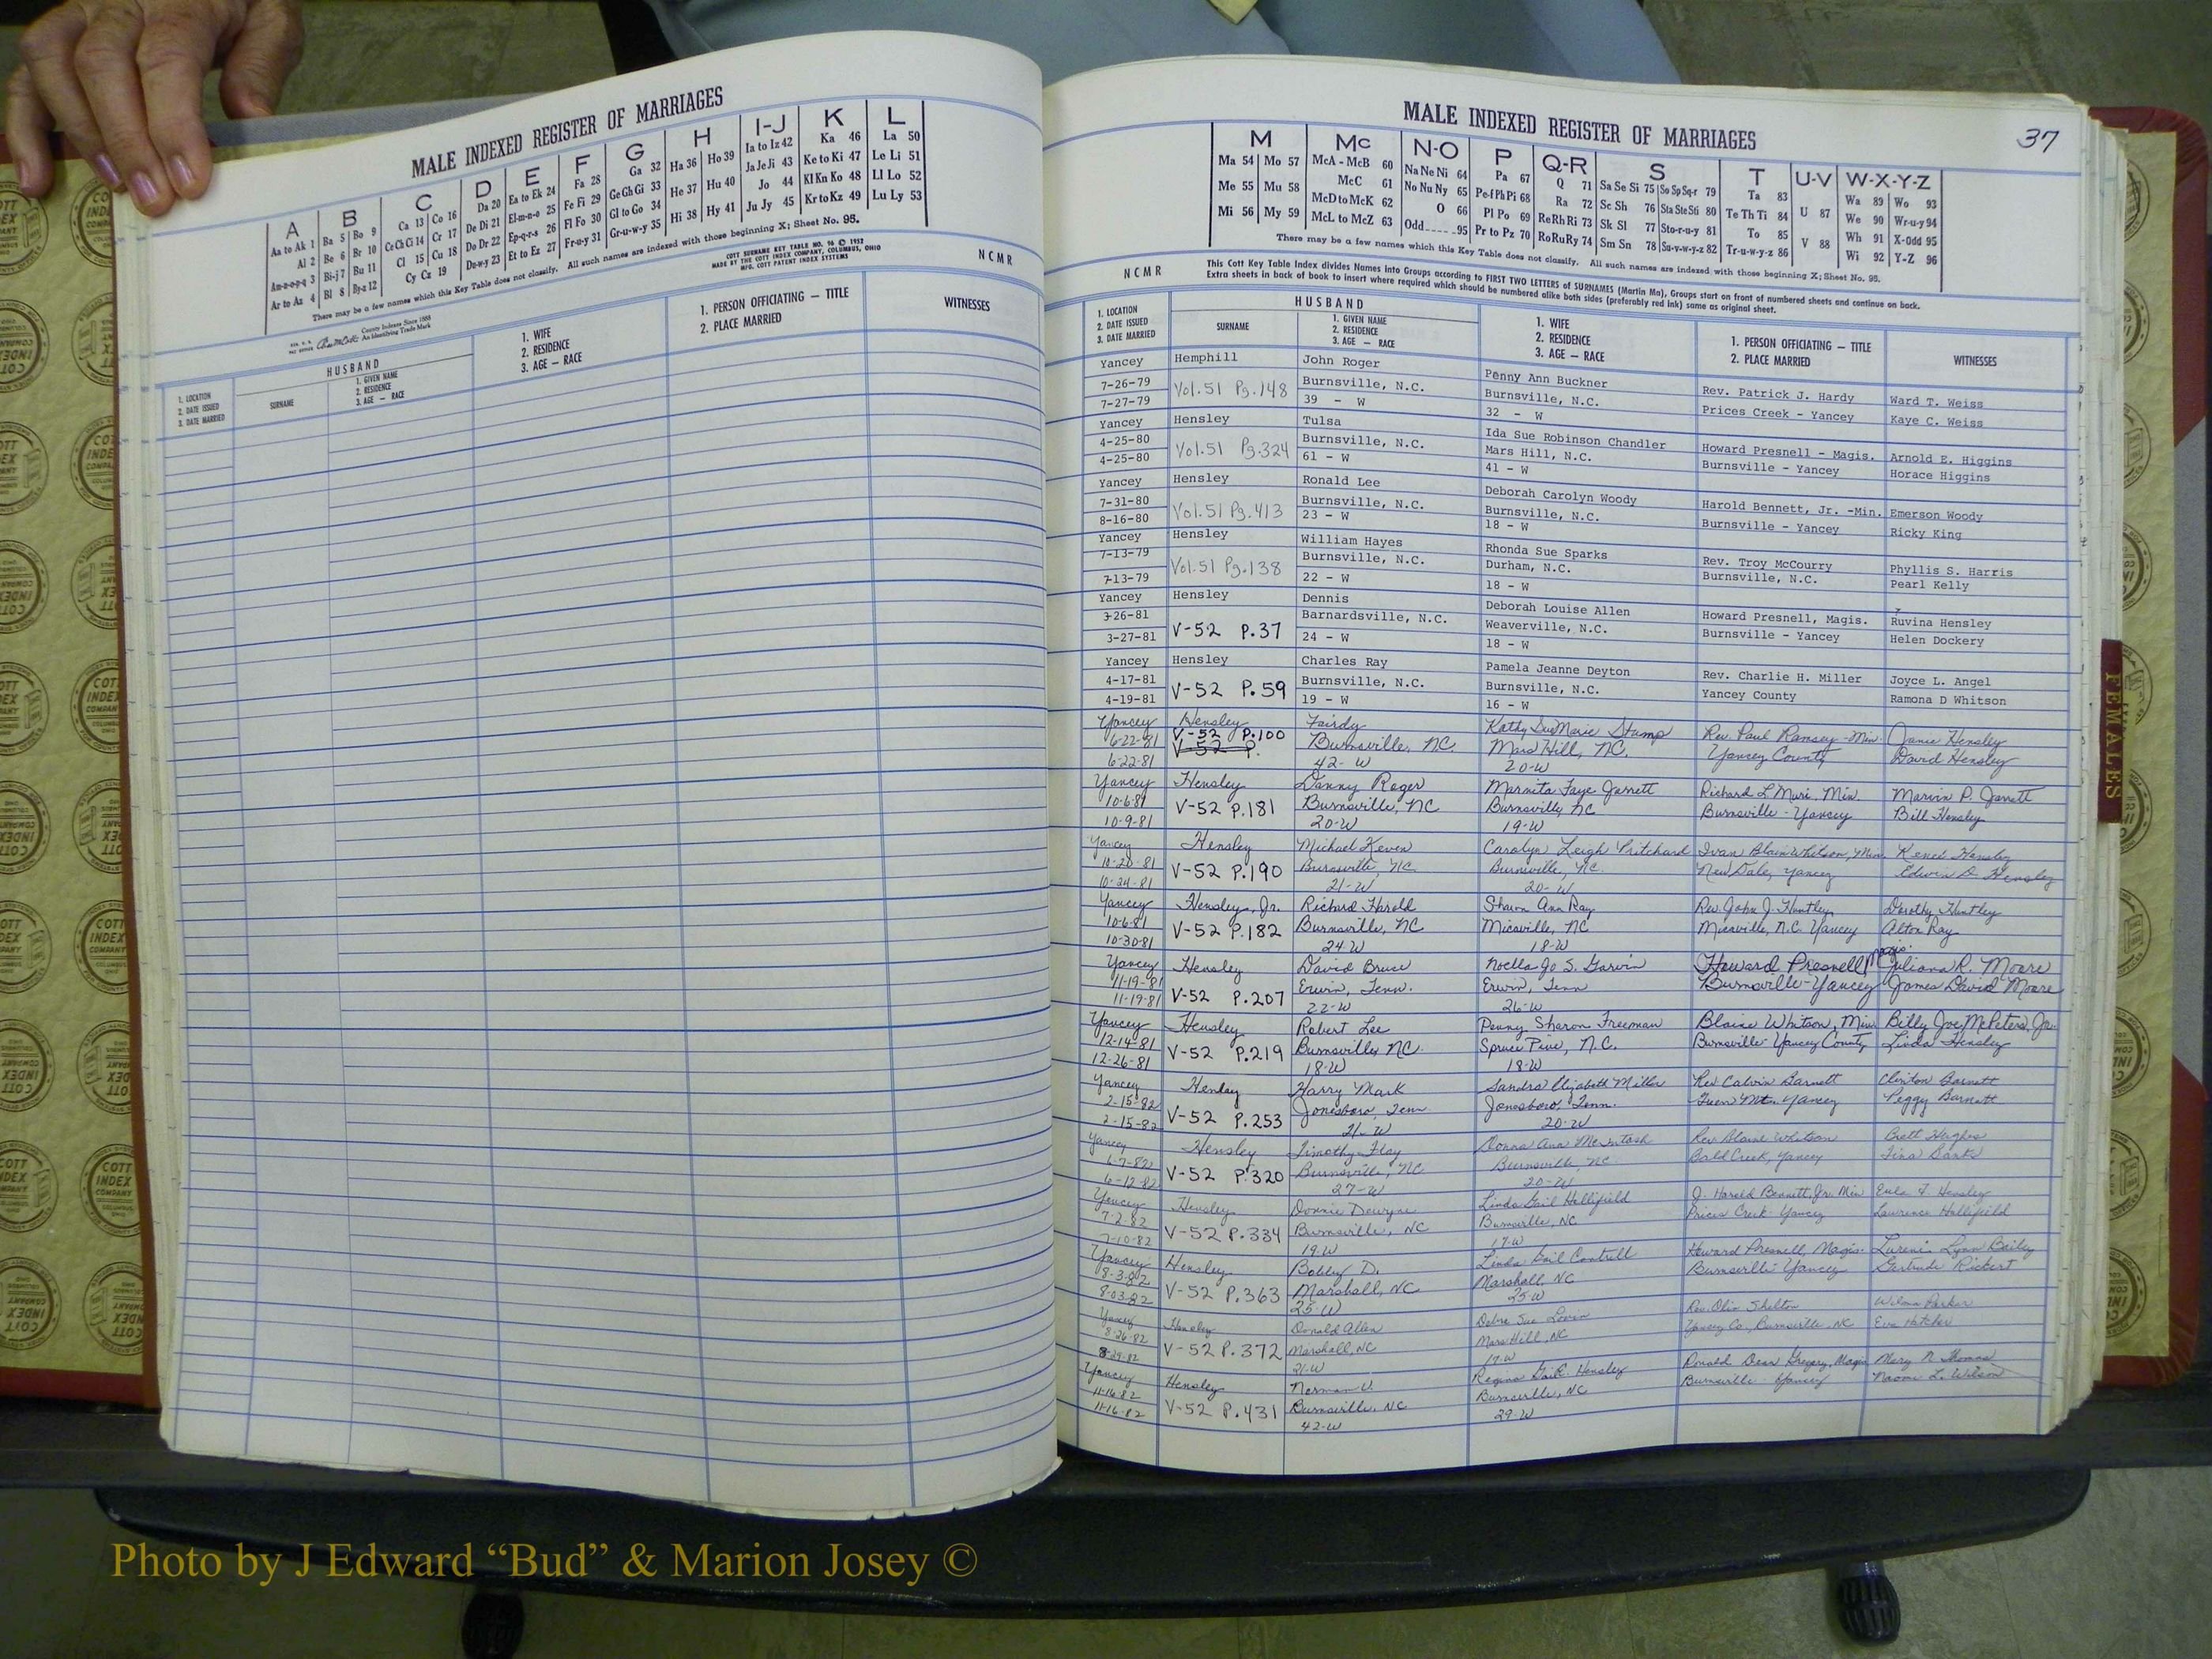 MALE INDEXED REGISTER OF MARRIAGES
A B C D E F G H I-J K L
Aa to Ak 1 Ba 5 Bo 9 Ca 13 Co 16 Da 20 Ea to Ek 24 Fa 28 Ga 32 Ha 36 Ho 39 Ia to Iz 42 Ka 46 La 50
Al 2 Be 6 Br 10 Ce Ch Ci 14 Cr 17 De Di 21 El-m-n-o 25 Fe Fi 29 Ge Gh Gi 33 He 37 Hu 40 Ja Je Ji 43 Ke to Ki 47 Le Li 51
Am-n-o-p-q 3 Bi-j 7 Bu 11 Cl 15 Cu 18 Do Dr 22 Ep-q-r-s 26 Fl Fo 30 Gl to Go 34 Hi 38 Hy 41 Jo 44 Kl Kn Ko 48 Ll Lo 52
Ar to Az 4 Bl 8 By-z 12 Cy Cz 19 Du-w-y 23 Et to Ez 27 Fr-u-y 31 Gr-u-w-y 35 Ju Jy 45 Kr to Kz 49 Lu Ly 53
There may be a few names which this Key Table does not classify. All such names are indexed with those beginning X; Sheet No. 95.
County Indexes Since 1888
An Identifying Trade Mark
COTT SURNAME KEY TABLE NO. 96 © 1957
MADE BY THE COTT INDEX COMPANY, COLUMBUS, OHIO
MFG. COTT PATENT INDEX SYSTEMS
NCMR
1. LOCATION
2. DATE ISSUED
3. DATE MARRIED
HUSBAND
SURNAME
1. GIVEN NAME
2. RESIDENCE
3. AGE — RACE
1. WIFE
2. RESIDENCE
3. AGE — RACE
1. PERSON OFFICIATING — TITLE
2. PLACE MARRIED
WITNESSES
MALE INDEXED REGISTER OF MARRIAGES
37
M Mc N-O P Q-R S T U-V W-X-Y-Z
Ma 54 Mo 57 McA - McB 60 Na Ne Ni 64 Pa 67 Q 71 Sa Se Si 75 So Sp Sq-r 79 Ta 83 Wa 89 Wo 93
Me 55 Mu 58 McC 61 No Nu Ny 65 Pe-f Ph Pi 68 Ra 72 Sc Sh 76 Sta Ste Sti 80 Te Th Ti 84 U 87 We 90 Wr-u-y 94
Mi 56 My 59 McD to McK 62 O 66 Pl Po 69 Re Rh Ri 73 Sk Sl 77 Sto-r-u-y 81 To 85 Wh 91 X-Odd 95
McL to McZ 63 Odd 95 Pr to Pz 70 Ro Ru Ry 74 Sm Sn 78 Su-v-w-y-z 82 Tr-u-w-y-z 86 V 88 Wi 92 Y-Z 96
There may be a few names which this Key Table does not classify. All such names are indexed with those beginning X; Sheet No. 95.
NCMR
This Cott Key Table Index divides Names into Groups according to FIRST TWO LETTERS of SURNAMES (Martin Ma), Groups start on front of numbered sheets and continue on back.
Extra sheets in back of book to insert where required which should be numbered alike both sides (preferably red ink) same as original sheet.
1. LOCATION
2. DATE ISSUED
3. DATE MARRIED
HUSBAND
SURNAME
1. GIVEN NAME
2. RESIDENCE
3. AGE — RACE
1. WIFE
2. RESIDENCE
3. AGE — RACE
1. PERSON OFFICIATING — TITLE
2. PLACE MARRIED
WITNESSES
Yancey Hemphill John Roger Penny Ann Buckner Rev. Patrick J. Hardy Ward T. Weiss
7-26-79 Vol.51 Pg.148 Burnsville, N.C. Burnsville, N.C. Prices Creek - Yancey Kaye C. Weiss
7-27-79 39 - W 32 - W
Yancey Hensley Tulsa Ida Sue Robinson Chandler Howard Presnell - Magis. Arnold E. Higgins
4-25-80 Vol.51 Pg.324 Burnsville, N.C. Mars Hill, N.C. Burnsville - Yancey Horace Higgins
4-25-80 61 - W 41 - W
Yancey Hensley Ronald Lee Deborah Carolyn Woody Harold Bennett, Jr. -Min. Emerson Woody
7-31-80 Vol.51 Pg.413 Burnsville, N.C. Burnsville, N.C. Burnsville - Yancey Ricky King
8-16-80 23 - W 18 - W
Yancey Hensley William Hayes Rhonda Sue Sparks Rev. Troy McCourry Phyllis S. Harris
7-13-79 Vol.51 Pg.138 Burnsville, N.C. Durham, N.C. Burnsville, N.C. Pearl Kelly
7-13-79 22 - W 18 - W
Yancey Hensley Dennis Deborah Louise Allen Howard Presnell, Magis. Ruvina Hensley
3-26-81 V-52 P.37 Barnardsville, N.C. Weaverville, N.C. Burnsville - Yancey Helen Dockery
3-27-81 24 - W 18 - W
Yancey Hensley Charles Ray Pamela Jeanne Deyton Rev. Charlie H. Miller Joyce L. Angel
4-17-81 V-52 P.59 Burnsville, N.C. Burnsville, N.C. Yancey County Ramona D Whitson
4-19-81 19 - W 16 - W
Yancey Hensley Fairdy Kathy Sue Marie Stump Rev. Paul Ramsey - Min. Janie Hensley
6-22-81 V-52 P.100 Burnsville, NC. Mars Hill, NC. Yancey County David Hensley
V-52 P.
6-22-81 42- W 20-W
Yancey Hensley Danny Roger Marnita Faye Jarrett Richard L Muri, Min. Marvin P. Jarrett
10-6-81 V-52 P.181 Burnsville, NC Burnsville, NC Burnsville - Yancey Bill Hensley
10-9-81 20-W 19-W
Yancey Hensley Michael Keven Carolyn Leigh Pritchard Ivan Blain Whitson, Min. Hensley
10-20-81 V-52 P.190 Burnsville, NC. Burnsville, NC. New Dale, Yancey Edwin D. Hensley
10-24-81 21-W 20-W
Yancey Hensley, Jr. Richard Harold Sharon Ann Ray Rev. John J. Huntley Dorothy Huntley
10-6-81 V-52 P.182 Burnsville, NC Micaville, NC Micaville, N.C. Yancey Alton Ray
10-30-81 24-W 18-W
Yancey Hensley David Bruce Noella Jo S. Garvin Howard Presnell, Magis. Juliana R. Moore
11-19-81 V-52 P.207 Erwin, Tenn. Erwin, Tenn Burnsville-Yancey James David Moore
11-19-81 22-W 26-W
Yancey Hensley Robert Lee Penny Sharon Freeman Blaine Whitson, Min. Billy Joe McPeters, Jr.
12-14-81 V-52 P.219 Burnsville, NC. Spruce Pine, N.C. Burnsville-Yancey County Linda Hensley
12-26-81 18-W 18-W
Yancey Henley Harry Mark Sandra Elizabeth Miller Rev Calvin Barnett Clinton Barnett
2-15-82 V-52 P.253 Jonesboro, Tenn Jonesboro, Tenn. Green Mt. Yancey Peggy Barnett
2-15-82 21-W 20-W
Yancey Hensley Timothy Floy Donna Ann McIntosh Rev. Blaine Whitson Brett Hughes
6-7-82 V-52 P.320 Burnsville, NC Burnsville, NC Bald Creek, Yancey Tina Banks
6-12-82 27-W 20-W
Yancey Hensley Donnie Dewyne Linda Gail Hollifield J. Harold Bennett, Jr. Min Eula F. Hensley
7-2-82 V-52 P.334 Burnsville, NC Burnsville, NC Prices Creek Yancey Lawrence Hollifield
7-10-82 19-W 17-W
Yancey Hensley Bobby D. Linda Gail Cantrell Howard Presnell, Magis. Lurenia Lynn Bailey
8-3-82 V-52 P.363 Marshall, NC Marshall, NC Burnsville - Yancey Gertrude Rickert
8-03-82 25-W 25-W
Yancey Hensley Donald Allen Debra Sue Rev. Olin Shelton Wilma Parker
8-26-82 V-52 P.372 Marshall, NC Mars Hill, NC Yancey Co., Burnsville, NC Eva Hatcher
8-29-82 21-W 17-W
Yancey Hensley Norman V. Regina Gail R. Hensley Ronald Dean Gregory, Magis Mary N. Thomas
11-16-82 V-52 P.431 Burnsville, NC Burnsville, NC Burnsville - Yancey Naomi L. Wilson
11-16-82 42-W 29-W
FEMALES
COTT INDEX COMPANY
Photo by J Edward “Bud” & Marion Josey ©